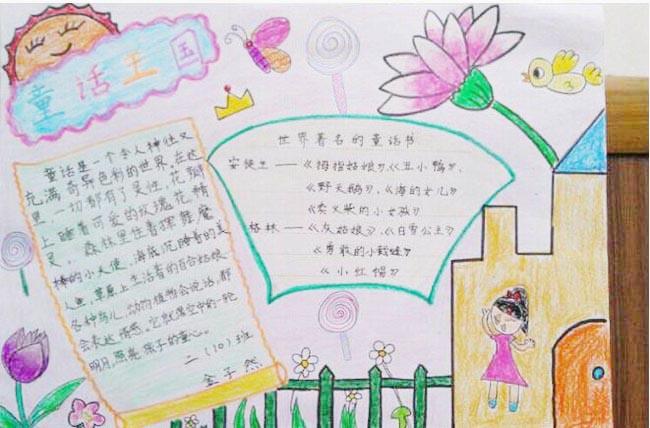 童话王国
童话是一个令人神往又
充满奇异色彩的世界。在这
里,一切都有了灵性,花瓣
上睡着可爱的玫瑰花精
灵,森林里住着挥舞魔
棒的小天使,海底沉睡着的美
人鱼,草原上生活着的百合姑娘
各种鸟儿,动物植物会说话,都
会表达情感。它就像空中的一轮
明月,照亮孩子的童心。
二(10)班
金子然
世界著名的童话书
安徒生——《拇指姑娘》、《丑小鸭》、
《野天鹅》、《海的女儿》
《卖火柴的小女孩》
格林——《灰姑娘》、《白雪公主》
《勇敢的小裁缝》
《小红帽》